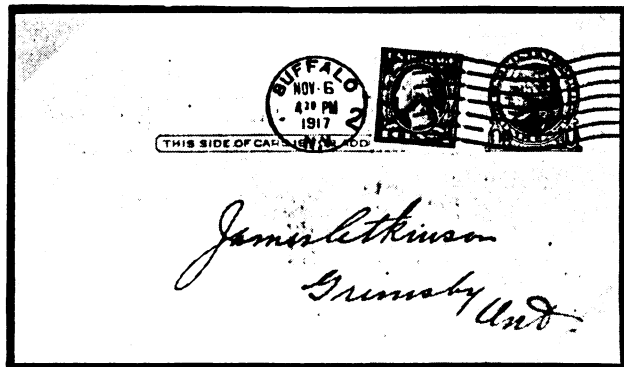 BUFFALO
NOV. 6
4 30 PM
1917
N.Y.
2
THIS SIDE OF CARD IS FOR ADD
James Atkinson
Grimsby
Ont.